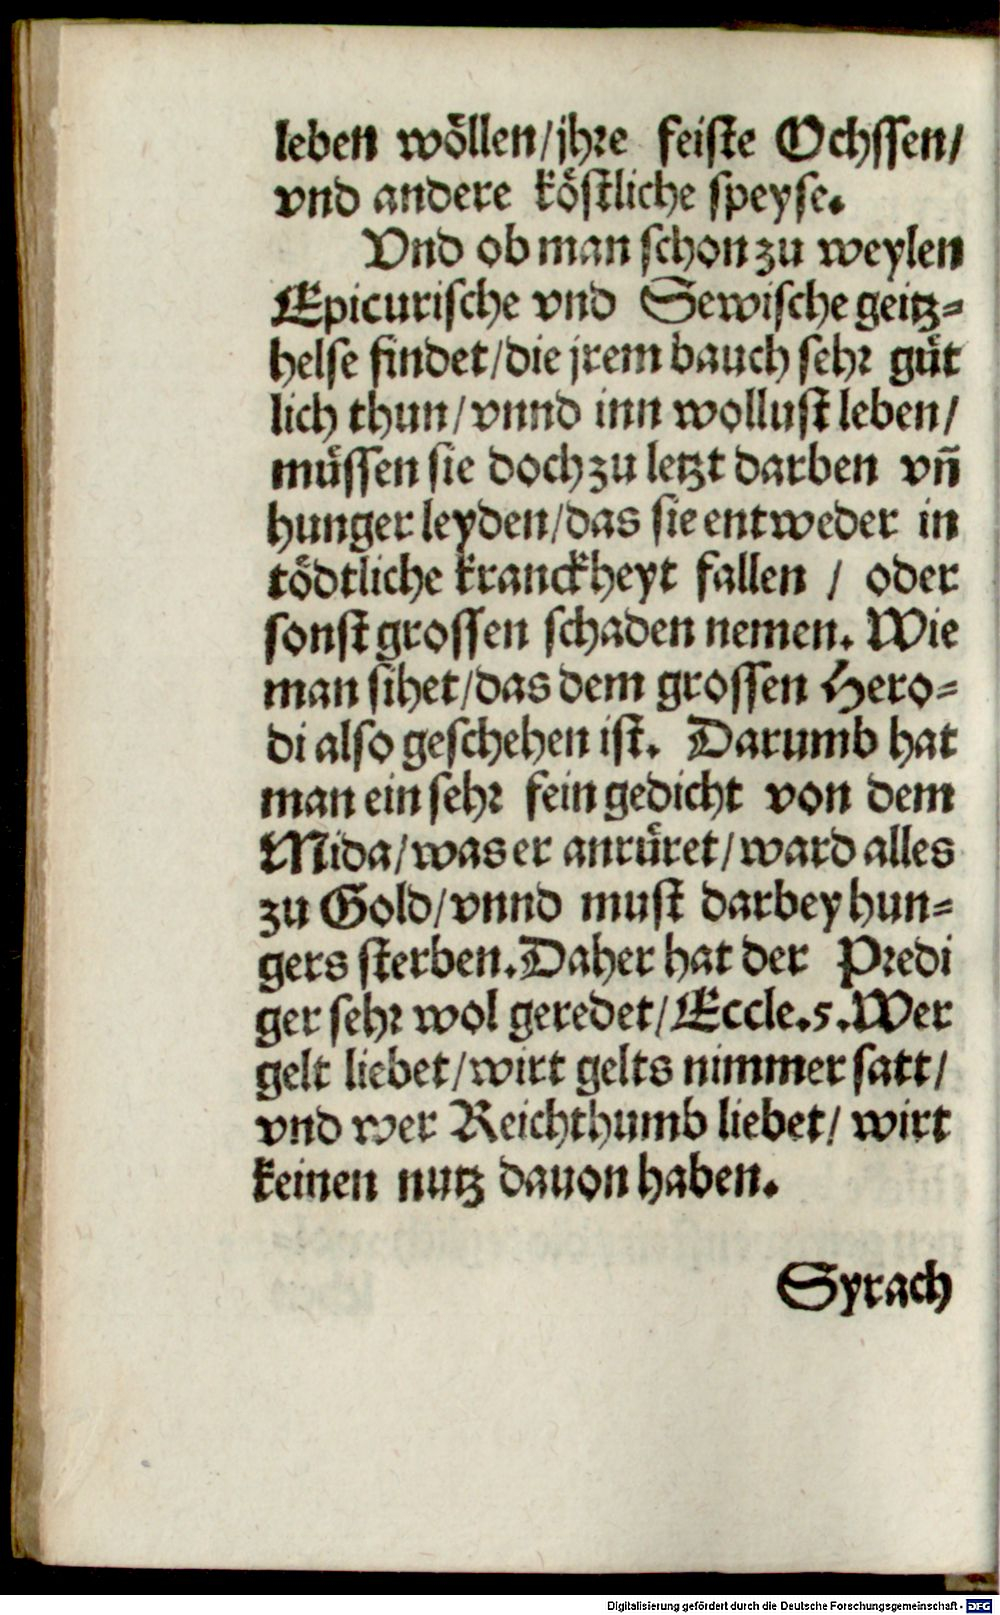 leben wöllen/jhre feiste Ochssen/
vnd andere köstliche speyse.
Vnd ob man schon zu weylen
Epicurische vnd Sewische geitz=
helse findet/die jrem bauch sehr güt
lich thun/vnnd inn wollust leben/
müssen sie doch zu letzt darben vn̄
hunger leyden/das sie entweder in
tödtliche kranckheyt fallen / oder
sonst grossen schaden nemen. Wie
man sihet/das dem grossen Hero=
di also geschehen ist. Darumb hat
man ein sehr fein gedicht von dem
Mida/was er anrüret/ward alles
zu Gold/vnnd must darbey hun=
gers sterben. Daher hat der Predi
ger sehr wol geredet/Eccle.5.Wer
gelt liebet/wirt gelts nimmer satt/
vnd wer Reichthumb liebet/ wirt
keinen nutz dauon haben.
Syrach
Digitalisierung gefördert durch die Deutsche Forschungsgemeinschaft - DFG